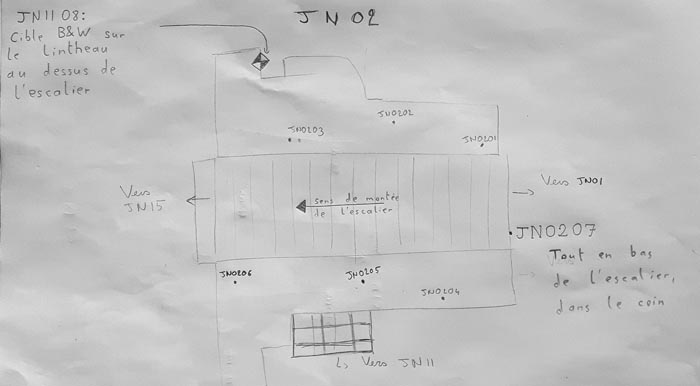 JN1108:
Cible B&W sur
le lintheau
au dessus de
l'escalier
JN02
JN0202
JN0203
JN0201
Vers
JN15
sens de montée
de l'escalier
Vers JN01
JN0207
Tout en bas
de l'escalier,
dans le coin
JN0206
JN0205
JN0204
Vers JN11